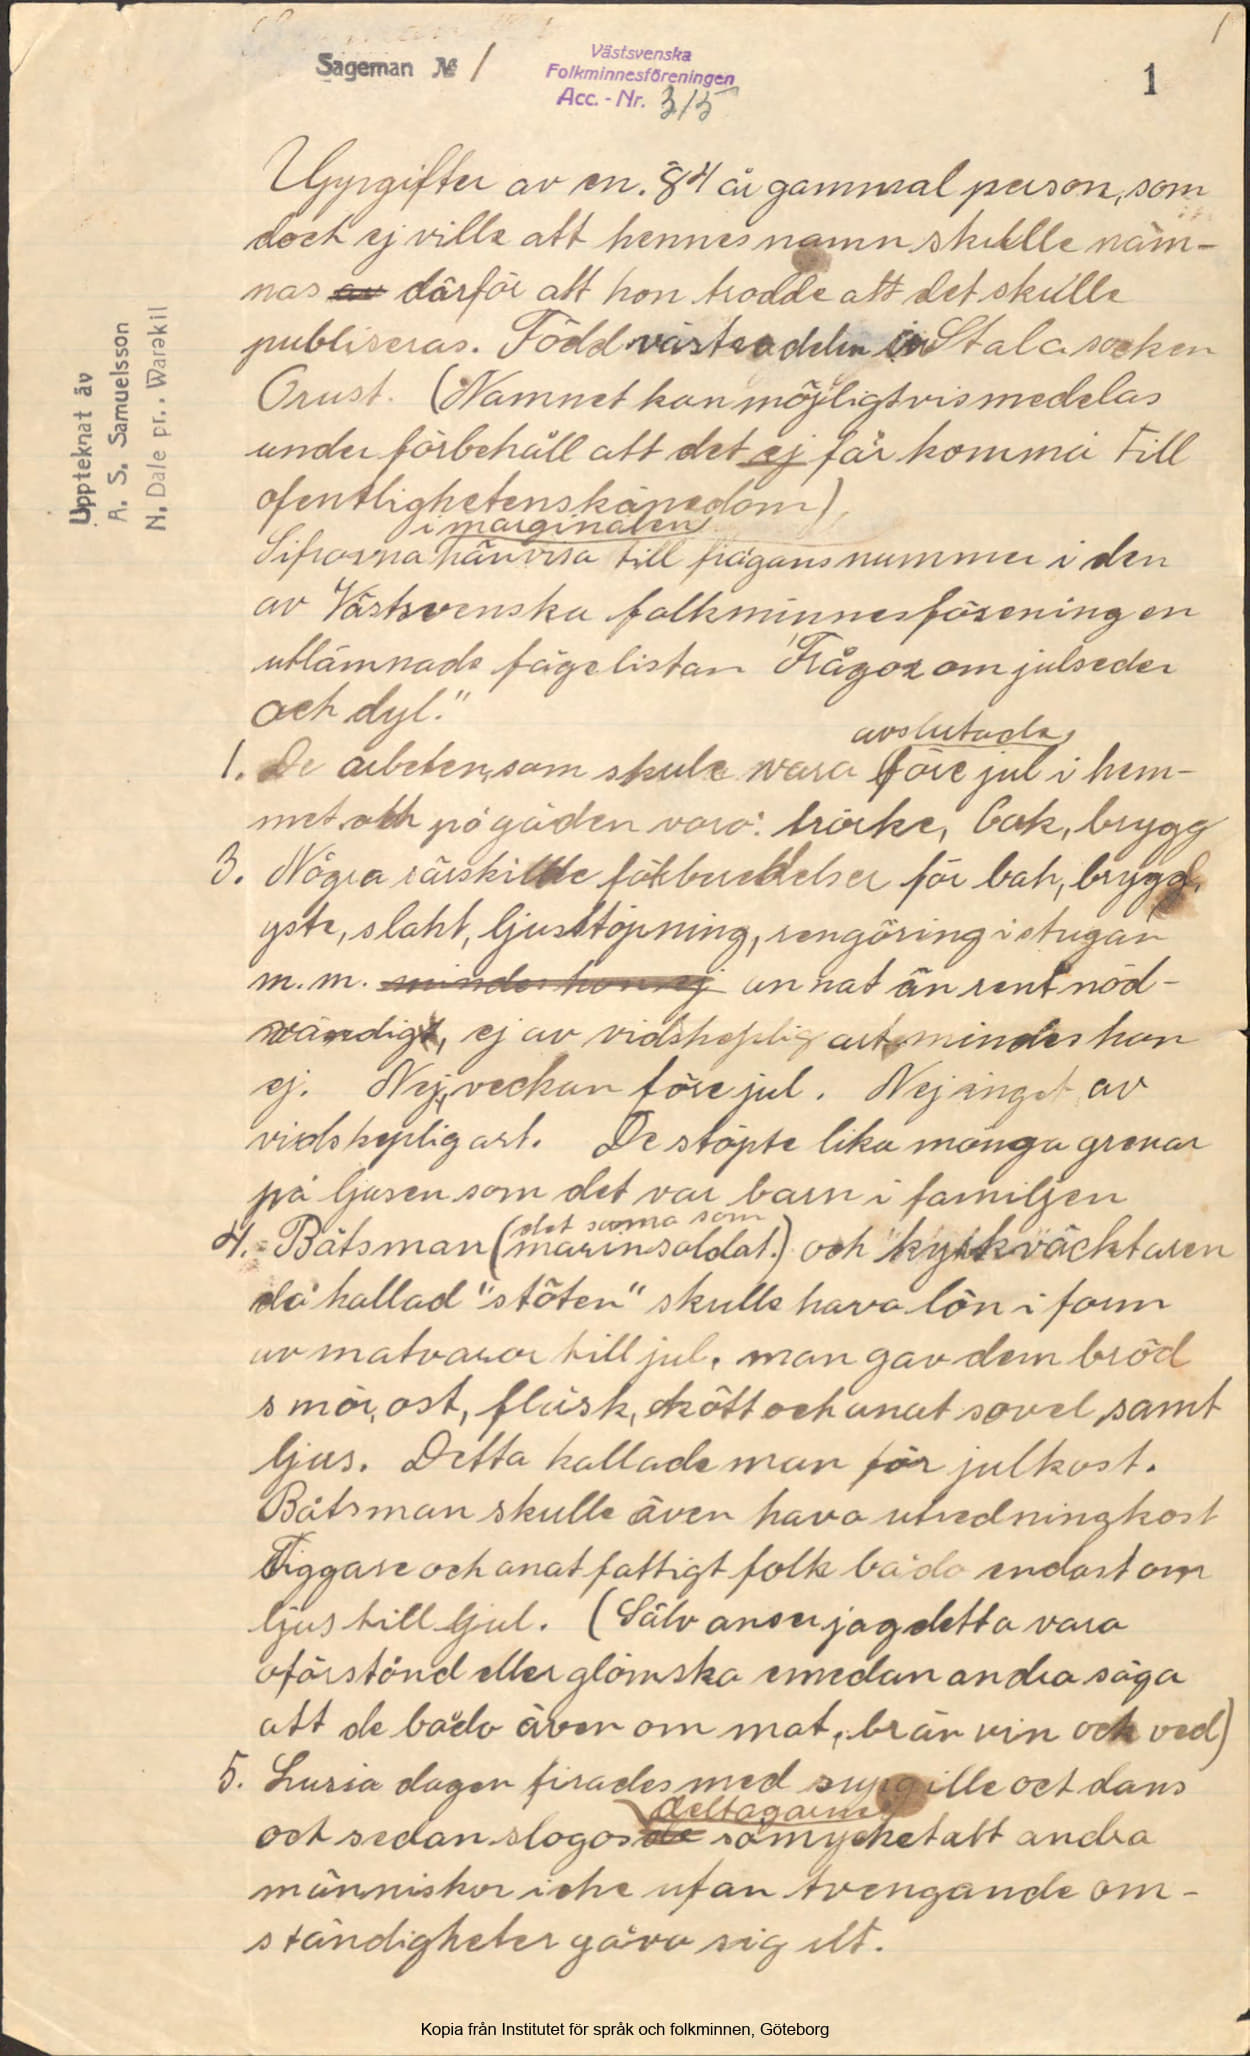 Sageman № 1
Västsvenska
Folkminnesföreningen
Acc. - Nr. 315
1
1
Uppteknat äv
A. S. Samuelsson
N. Dale pr. Warekil
Uppgifter av en. 84 år gammal person, som
doch ej ville att hennes namn skulle näm-
nas av därför att hon trodde att det skulle
publiseras. Född västra delen i Stala socken
Orust. (Namnet kan möjligtvis medelas
under förbehåll att det ej får komma till
ofentlighetens kännedom)
i marginalen
Sifrorna hänvisa till frågans nummer i den
av Västsvenska folkminnesföreningen
utlämnade frågelistan "Frågor om julseder
och dyl."
avslutade
1. De arbeten, som skule vara före jul i hem-
met och på gården voro: tröske, bak, brygg
3. Några särskillde förberedelser för bak, brygg,
yste, slakt, ljusstöpning, rengöring i stugan
m. m. mindes hon ej annat än rent nöd-
vändigt, ej av vidskeplig art mindes hon
ej. Nej, veckan före jul. Nej inget av
vidskeplig art. De stöpte lika många grenar
på ljusen som det var barn i familjen
det sama som
4. Båtsman (marinsoldat.) och kyrkväcktaren
då kallad "stöten" skulle hava lön i form
av matvaror till jul, man gav dem bröd
smör, ost, fläsk, kött och anat sovel, samt
ljus. Detta kallade man för julkost.
Båtsman skulle även hava utredningkost
Tiggare och anat fattigt folk bådo endast om
ljus till jul. (Sälv anser jag detta vara
oförstånd eller glömska emedan andra säga
att de bådo även om mat, brän vin och ved)
5. Lusia dagen firades med supgille oct dans
deltagarne
oct sedan slogos de såmycket att andra
människor icke utan tvengande om-
ständigheter gåvo sig ut.
Kopia från Institutet för språk och folkminnen, Göteborg